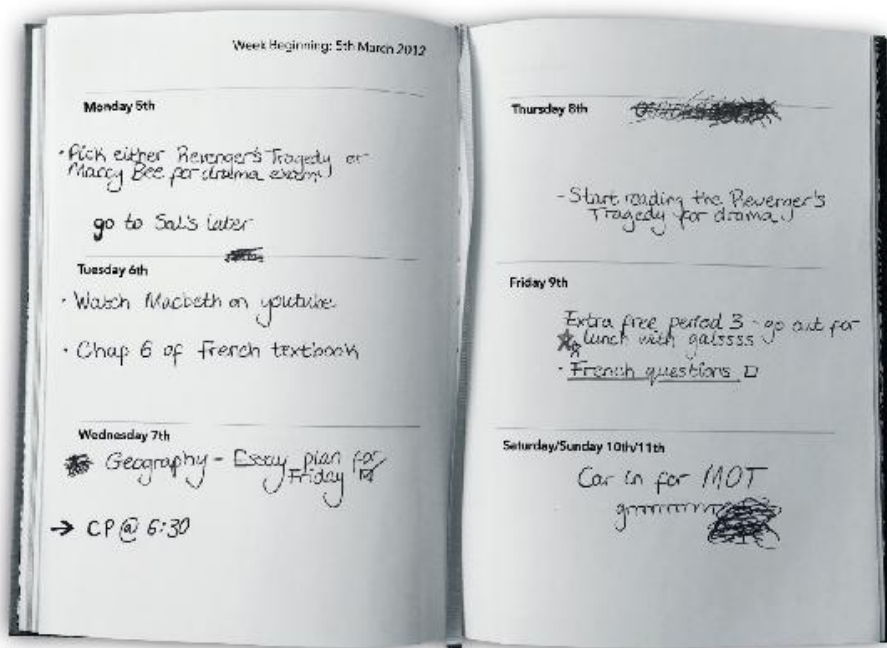 Week Beginning: 5th March 2012
Monday 5th
· Pick either Revenger's Tragedy or
Maccy Bee for drama exam
go to Sal's later
Tuesday 6th
· Watch Macbeth on youtube
· Chap 6 of French textbook
Wednesday 7th
Geography - Essay plan for
Friday ☑
→ CP @ 6:30
Thursday 8th
- Start reading the Revenger's
Tragedy for drama
Friday 9th
Extra free period 3 - go out for
lunch with galssss
· French questions □
Saturday/Sunday 10th/11th
Car in for MOT
grrrrrrrrr